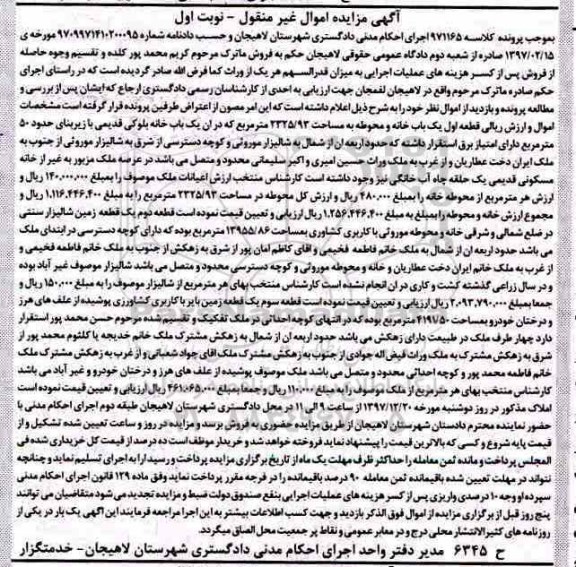 آگهی مزایده اموال غیر منقول - نوبت اول
بموجب پرونده کلاسه ۹۷۱۱۶۵ اجرای احکام مدنی دادگستری شهرستان لاهیجان و حسب دادنامه شماره ۹۷۰۹۹۷۱۴۱۰۲۰۰۰۹۵ مورخه ی
۱۳۹۷/۰۲/۱۵ صادره از شعبه دوم دادگاه عمومی حقوقی لاهیجان حکم به فروش ماترک مرحوم کریم محمد پور کلده و تقسیم وجوه حاصله
از فروش پس از کسر هزینه های عملیات اجرایی به میزان قدرالسهم هر یک از وراث کما فرض الله صادر گردیده است که در راستای اجرای
حکم صادره ماترک مرحوم واقع در لاهیجان لفمجان جهت ارزیابی به احدی از کارشناسان رسمی دادگستری ارجاع که ایشان پس از بررسی و
مطالعه پرونده و بازدید از اموال نظر خود را به شرح ذیل اعلام داشته است که این امر مصون از اعتراض طرفین پرونده قرار گرفته است مشخصات
اموال و ارزش ریالی قطعه اول یک باب خانه و محوطه به مساحت ۲۳۲۵/۹۳ مترمربع که در ان یک باب خانه بلوکی قدیمی با زیربنای حدود ۵۰
مترمربع دارای امتیاز برق استقرار داشته که حدود اربعه ان از شمال به شالیزار موروثی و کوچه دسترسی از شرق به شالیزار موروثی از جنوب به
ملک ایران دخت عطاریان و از غرب به ملک وراث حسین امیری و اکبر سلیمانی محدود و متصل می باشد در عرصه ملک مزبور به غیر از خانه
مسکونی قدیمی یک حلقه چاه آب خانگی نیز وجود داشته است کارشناس منتخب ارزش اعیانات ملک موصوف را بمبلغ ۱۴۰,۰۰۰,۰۰۰ ریال و
ارزش هر مترمربع از محوطه خانه را بمبلغ ۴۸۰,۰۰۰ ریال و ارزش کل محوطه در مساحت ۲۳۲۵/۹۳ مترمربع را به مبلغ ۱,۱۱۶,۴۴۶,۴۰۰ ریال و
مجموع ارزش خانه و محوطه را بمبلغ به مبلغ ۱,۲۵۶,۴۴۶,۴۰۰ ریال ارزیابی و تعیین قیمت نموده است قطعه دوم یک قطعه زمین شالیزار سنتی
در ضلع شمالی و شرقی خانه و محوطه موروثی با کاربری کشاورزی بمساحت ۱۳۹۵۵/۸۶ مترمربع بوده که دارای کوچه دسترسی در ابتدای ملک
می باشد حدود اربعه ان از شمال به ملک خانم فاطمه فخیمی و اقای کاظم امان پور از شرق به زهکش از جنوب به ملک خانم فاطمه فخیمی و
از غرب به ملک خانم ایران دخت عطاریان و خانه و محوطه موروثی و کوچه دسترسی محدود و متصل می باشد شالیزار موصوف غیر آباد بوده
و در سال زراعی گذشته کشت و کاری در ان انجام نشده است کارشناس منتخب بهای هر مترمربع از شالیزار موصوف را به مبلغ ۱۵۰,۰۰۰ ریال و
جمعا بمبلغ ۲,۰۹۳,۷۹۰,۰۰۰ ریال ارزیابی و تعیین قیمت نموده است قطعه سوم یک قطعه زمین بایر با کاربری کشاورزی پوشیده از علف های هرز
و درختان خودرو بمساحت ۴۱۹۱/۵۰ مترمربع بوده که در انتهای کوچه احداثی در ملک تفکیک و تقسیم شده مرحوم حسن محمد پور استقرار
دارد چهار طرف ملک در طبیعت دارای زهکش می باشد حدود اربعه ان از شمال به زهکش مشترک ملک خانم خدیجه یا کلثوم محمد پور از
شرق به زهکش مشترک به ملک وراث فیض اله جوادی از جنوب به زهکش مشترک ملک اقای جواد شعبانی و از غرب به زهکش مشترک ملک
خانم فاطمه محمد پور و کوچه احداثی محدود و متصل می باشد ملک موصوف پوشیده از علف های هرز و درختان خودرو و غیر آباد می باشد
کارشناس منتخب بهای هر مترمربع از ملک موصوف را به مبلغ ۱۱۰,۰۰۰ ریال و جمعا به مبلغ ۴۶۱,۰۶۵,۰۰۰ ریال ارزیابی و تعیین قیمت نموده است
املاک مذکور در روز دوشنبه مورخه ۱۳۹۷/۱۲/۲۰ از ساعت ۹ الی ۱۱ در محل دادگستری شهرستان لاهیجان طبقه دوم اجرای احکام مدنی با
حضور نماینده محترم دادستان شهرستان لاهیجان از طریق مزایده حضوری به فروش برسد و مزایده در روز و ساعت تعیین شده تشکیل و از
قیمت پایه شروع و کسی که بالاترین قیمت را پیشنهاد نماید فروخته خواهد شد و خریدار موظف است ده درصد از قیمت کل خریداری شده فی
المجلس پرداخت و مانده ثمن معامله را حداکثر ظرف مهلت یک ماه از تاریخ برگزاری مزایده پرداخت و رسید ارا به اجرای تسلیم نماید و چنانچه
نتواند در مهلت تعیین شده باقیمانده ثمن معامله ۹۰ درصد باقیمانده را در فرجه مقرر پرداخت نماید وفق ماده ۱۲۹ قانون اجرای احکام مدنی
سپرده او وجه ۱۰ درصدی واریزی پس از کسر هزینه های عملیات اجرایی بنفع صندوق دولت ضبط و مزایده تجدید می شود متقاضیان می توانند
پنج روز قبل از برگزاری مزایده از اموال فوق الذکر بازدید و جهت کسب اطلاعات بیشتر به این اجرا مراجعه فرمایند این آگهی یک بار در یکی از
روزنامه های کثیرالانتشار محلی درج و در معابر عمومی و نقاط پر جمعیت محل الصاق میگردد.
ح ۶۳۴۵ مدیر دفتر واحد اجرای احکام مدنی دادگستری شهرستان لاهیجان- خدمتگزار